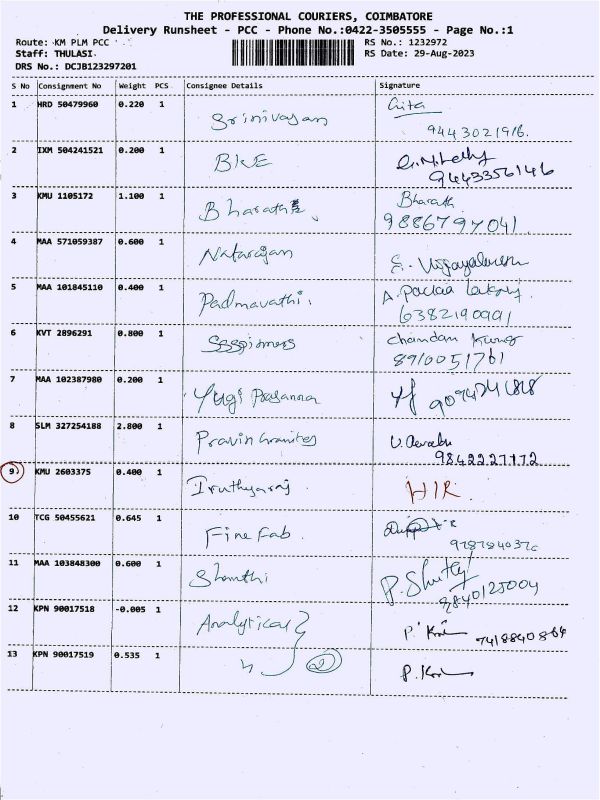 THE PROFESSIONAL COURIERS, COIMBATORE
Delivery Runsheet - PCC - Phone No.:0422-3505555 - Page No.:1
Route: KM PLM PCC
RS No.: 1232972
Staff: THULASI
RS Date: 29-Aug-2023
DRS No.: DCJB123297201
S No Consignment No Weight PCS Consignee Details Signature
1 HRD 50479960 0.220 1 Srinivasan Gita
9443021916.
2 IXM 504241521 0.200 1 BKE
9443356146
3 KMU 1105172 1.100 1 Bharath Bharath
9886797041.
4 MAA 571059387 0.600 1 Natarajan
5 MAA 101845110 0.400 1 Padmavathi.
6382190991
6 KVT 2896291 0.800 1 Chandan
8910051761
7 MAA 102387980 0.200 1 Yugi Prasanna
8 SLM 327254188 2.800 1 Pravin Granites
9842227172
9 KMU 2603375 0.400 1 Iruthyaraj HIR.
10 TCG 50455621 0.645 1 Fine Fab.
11 MAA 103848300 0.600 1 Shanthi
9840125004
12 KPN 90017518 -0.005 1 Analytical
13 KPN 90017519 0.535 1 2